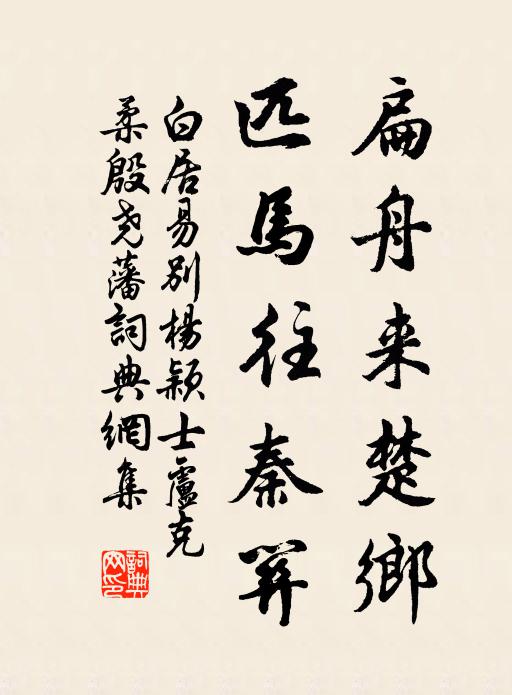 扁舟来楚鄉
匹馬往秦關
白居易別楊穎士盧克
柔殷尧藩詞典網集
詞典网印